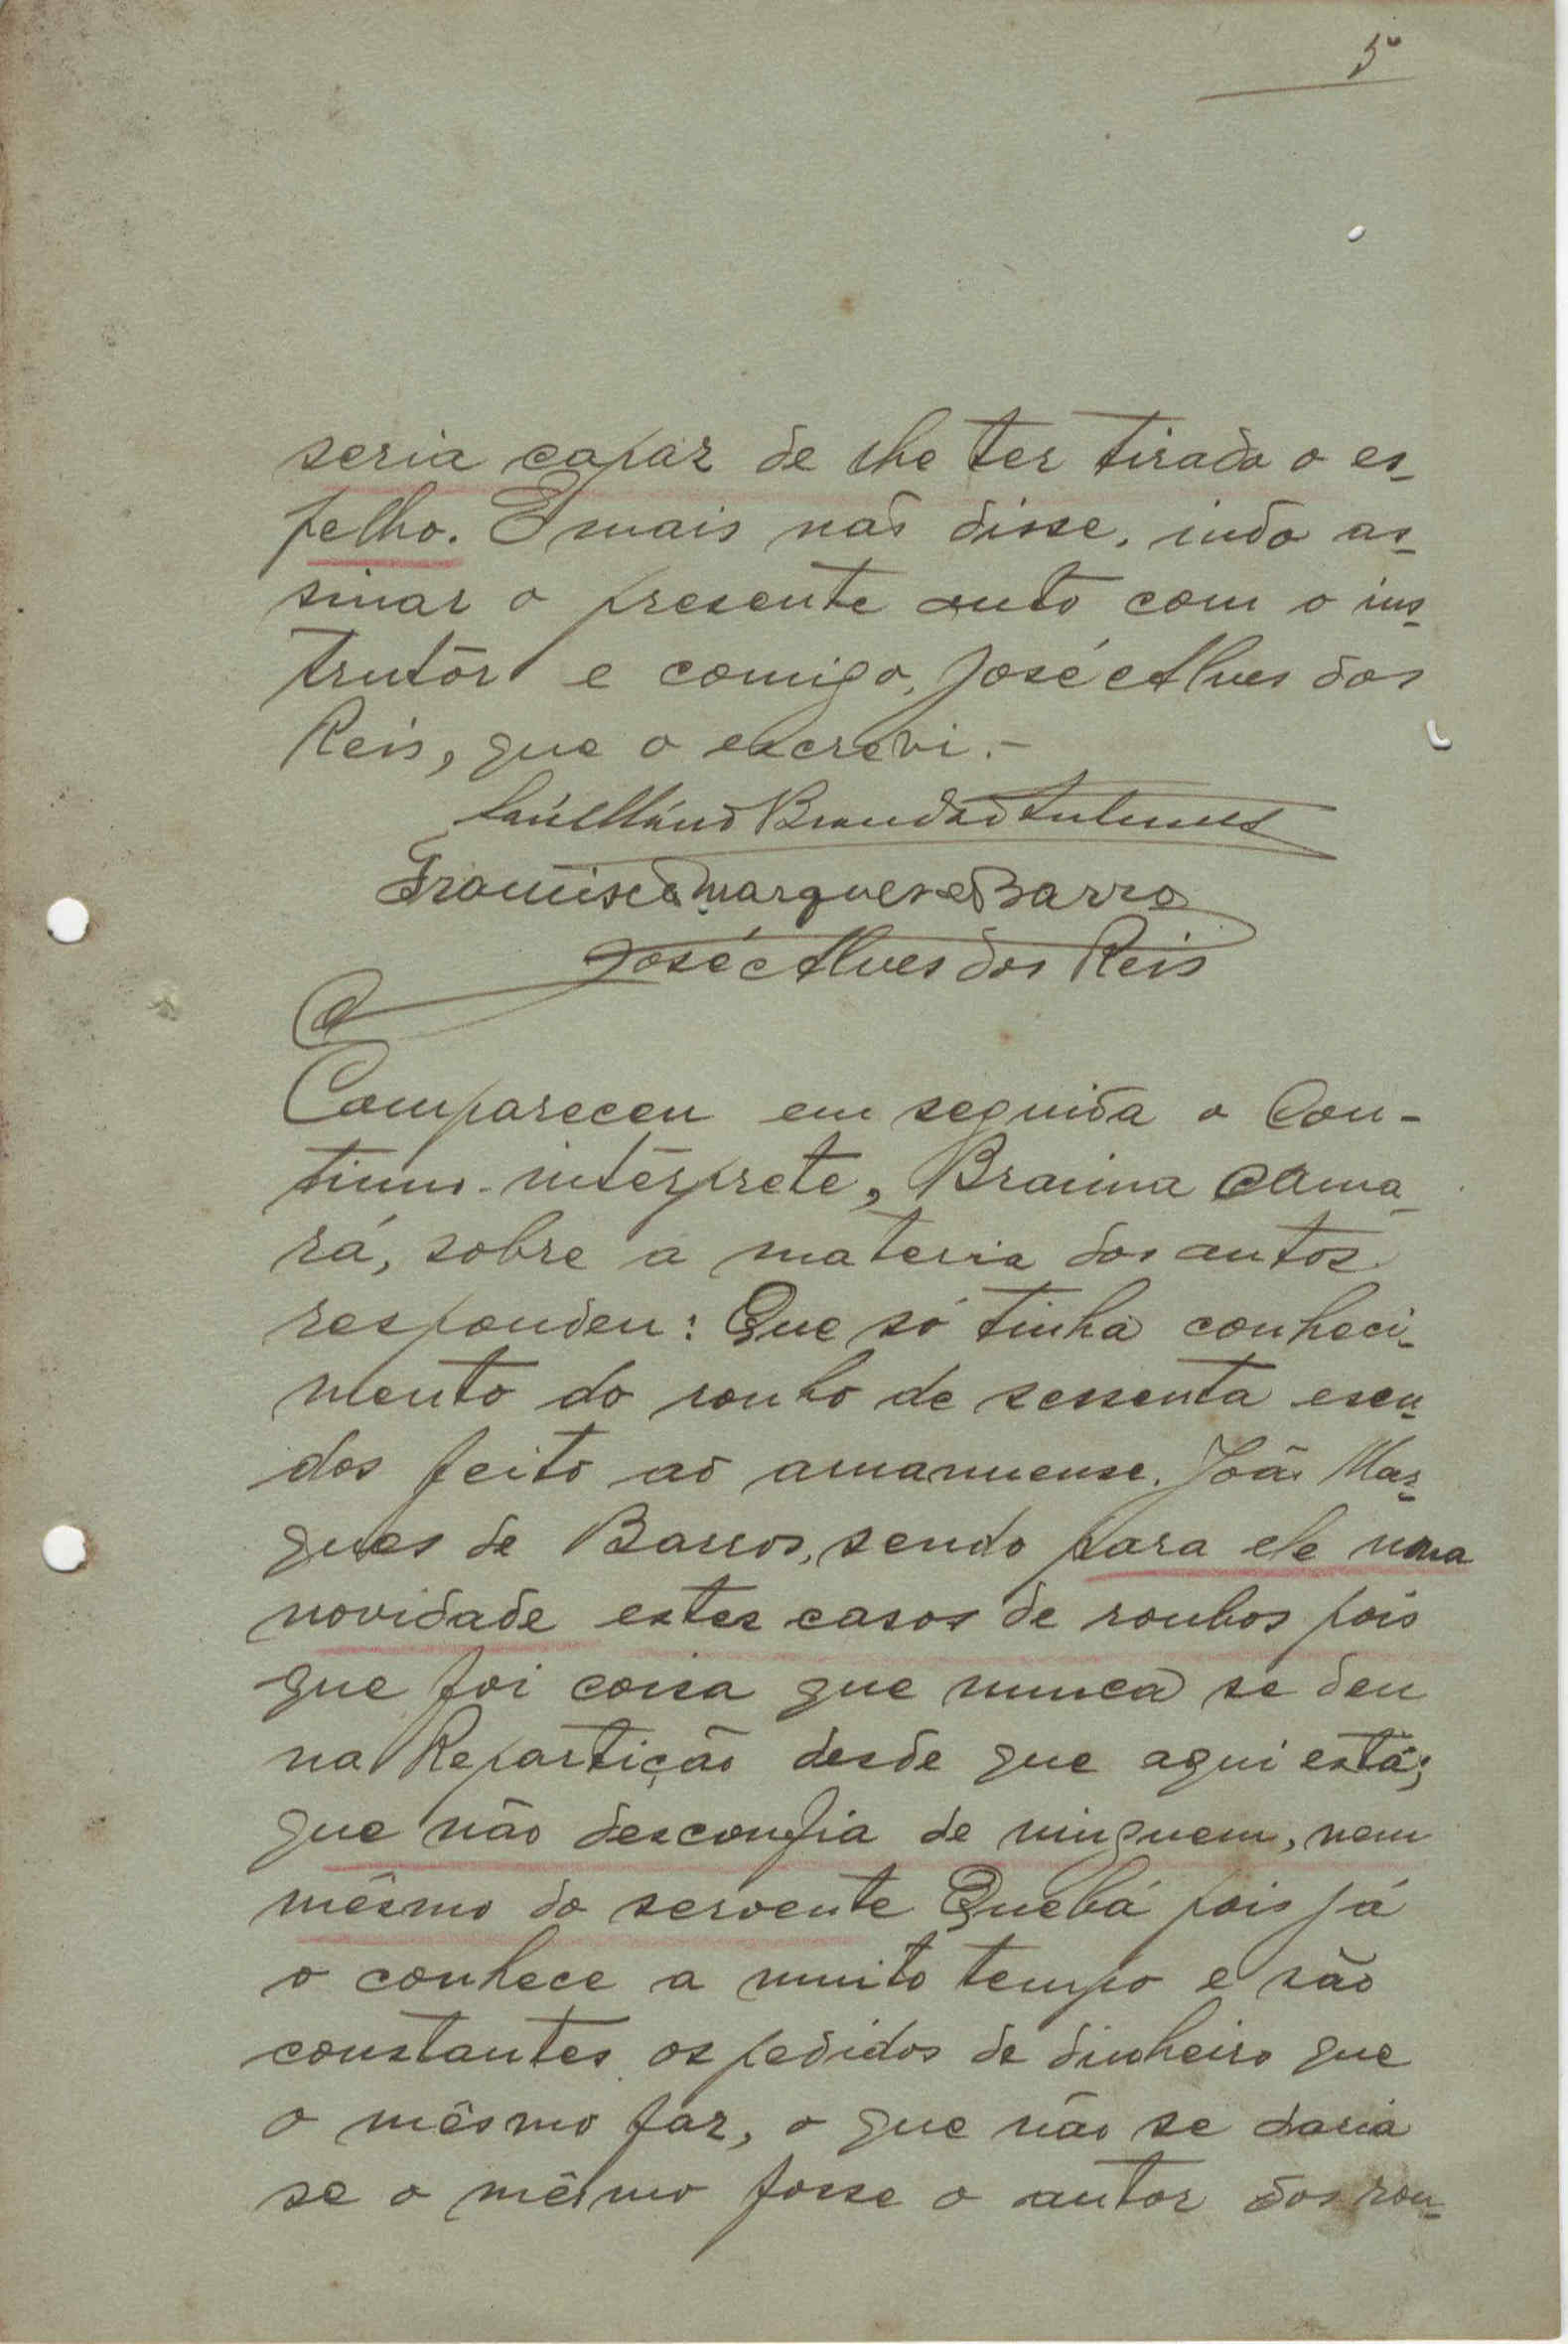 5
seria capaz de lhe ter tirado o es-
pelho. E mais não disse, indo as-
sinar o presente auto com o ins-
trutôr e comigo, José Alves dos
Reis, que o escrevi.-
Brandão Antunes
Francisco Marques de Barros
José Alves dos Reis
Compareceu em seguida o Con-
tinuo-intérprete, Braima Cama-
rá, sobre a materia dos autos
respondeu: Que só tinha conheci-
mento do roubo de sessenta escu-
dos feito ao amanuense João Mar-
ques de Barros, sendo para ele uma
novidade estes casos de roubos pois
que foi coisa que nunca se deu
na Repartição desde que aqui está;
que não desconfia de ninguem, nem
mêsmo do servente Quebá pois já
o conhece a muito tempo e são
constantes os pedidos de dinheiro que
o mêsmo faz, o que não se daria
se o mêsmo fosse o autor dos rou-